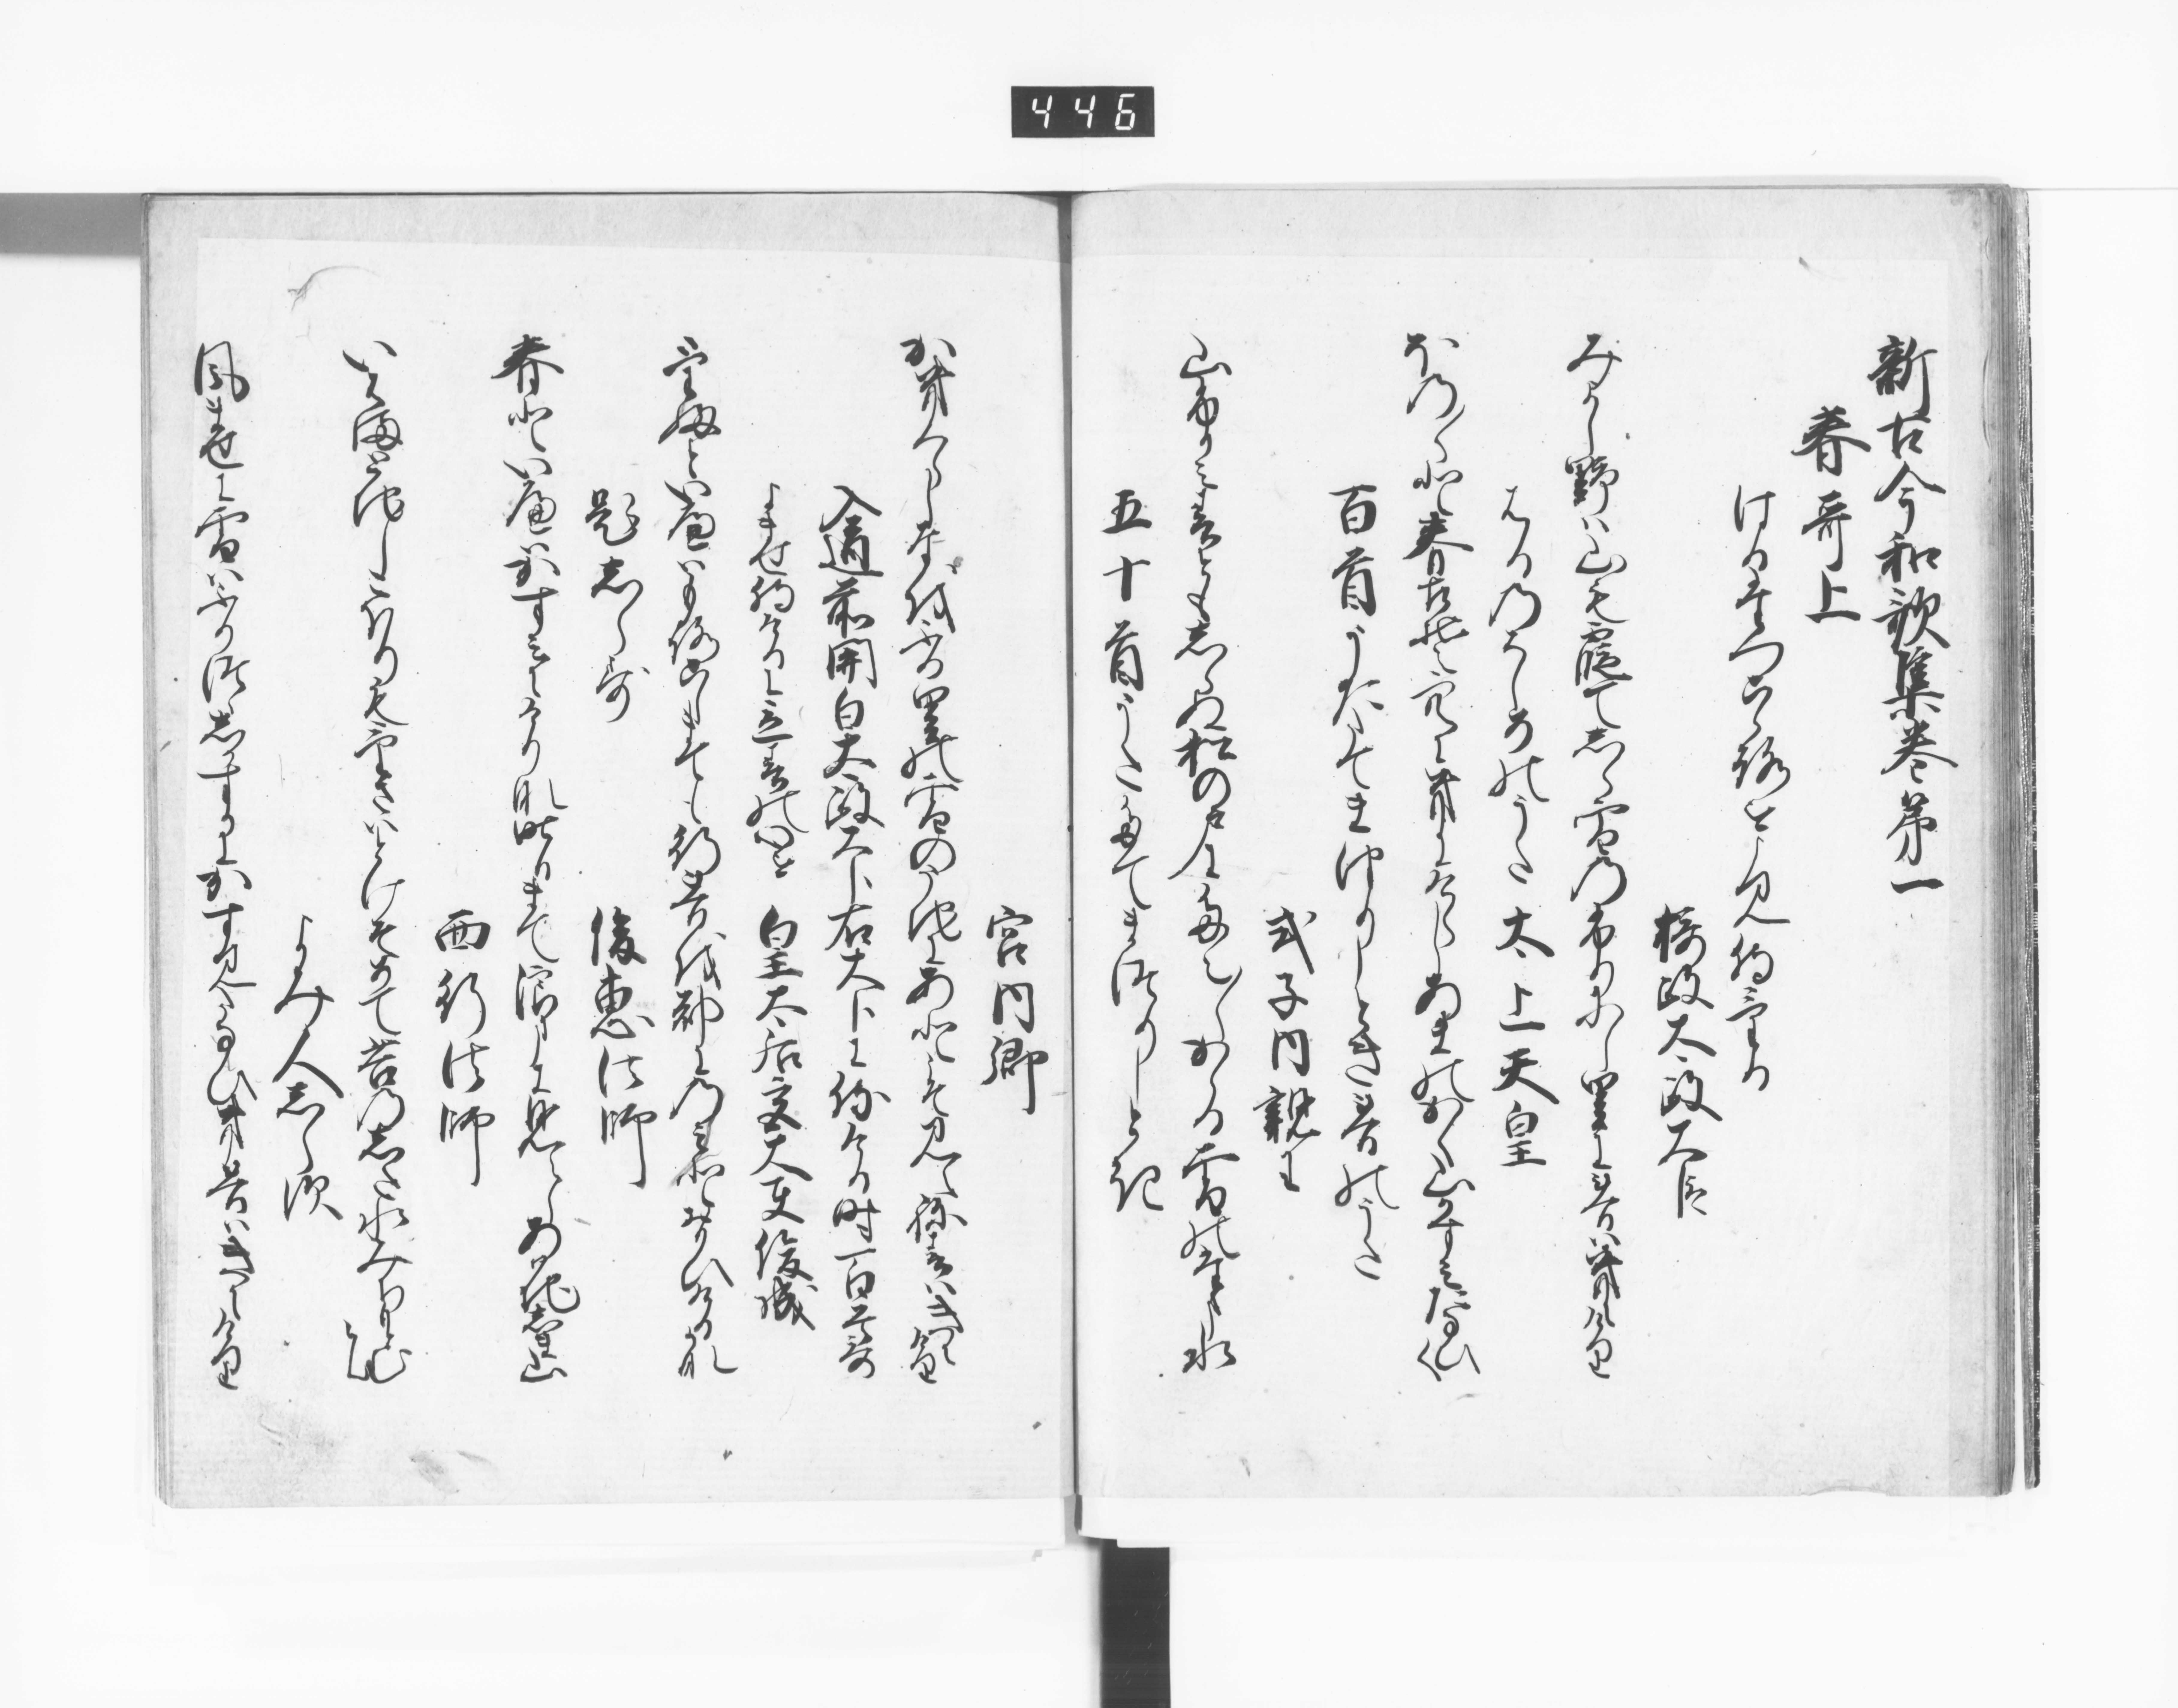 446
新古今和歌集巻第一
春哥上
はるたつこゝろをよみ侍ける
摂政太政大臣
みよし野は山も霞てしら雪のふりにし里に春はきにけり
はるのはしめのうた 太上天皇
ほの〳〵と春こそ空にきにけらしあまのかく山かすみたなひく
百首うたたてまつりしとき春のうた
式子内親王
山ふかみ春ともしらぬ松の戸にたえ〳〵かゝる雪の玉水
五十首うたたてまつりしとき
宮内卿
かきくらしなをふる里の雪のうちにあとこそ見えね春はきにけり
入道前関白太政大臣右大臣に侍ける時百首哥
よませ侍けるに立春の心を 皇太后宮大夫俊成
けふといへはもろこしまても行春を都にのみとおもひけるかな
題しらす 俊恵法師
春といへはかすみにけりなきのふまて浪まに見えしあはち嶋山
西行法師
いはまとちしこほりもけさはとけそめて苔のしたみつみちもとむ也
よみ人しらす
風ませに雪はふりつゝしかすかにかすみたなひき春はきにけり